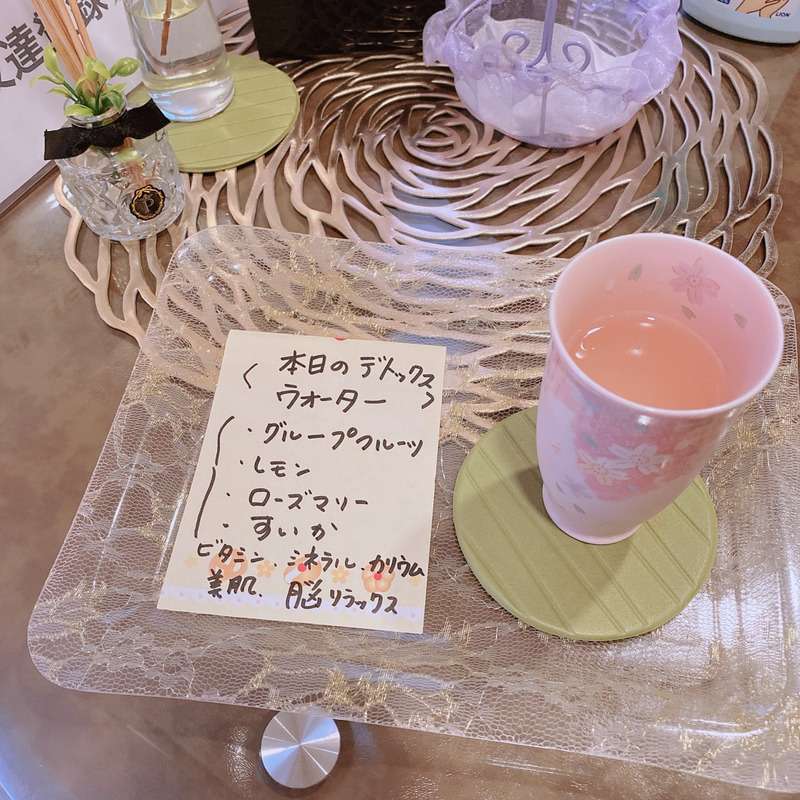 本日のデトックス
ウォーター
・グループフルーツ
・レモン
・ローズマリー
・すいか
ビタミン、ミネラル、カリウム
美肌、脳リラックス
LION